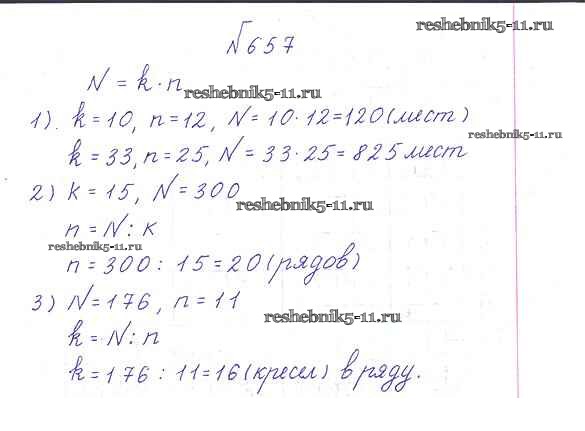 reshebnik5-11.ru
№657
N = k · n
reshebnik5-11.ru
1). k = 10, n = 12, N = 10 · 12 = 120 (мест)
reshebnik5-11.ru
k = 33, n = 25, N = 33 · 25 = 825 мест
2) k = 15, N = 300
reshebnik5-11.ru
n = N : k
reshebnik5-11.ru
n = 300 : 15 = 20 (рядов)
3) N = 176, n = 11
reshebnik5-11.ru
k = N : n
k = 176 : 11 = 16 (кресел) в ряду.